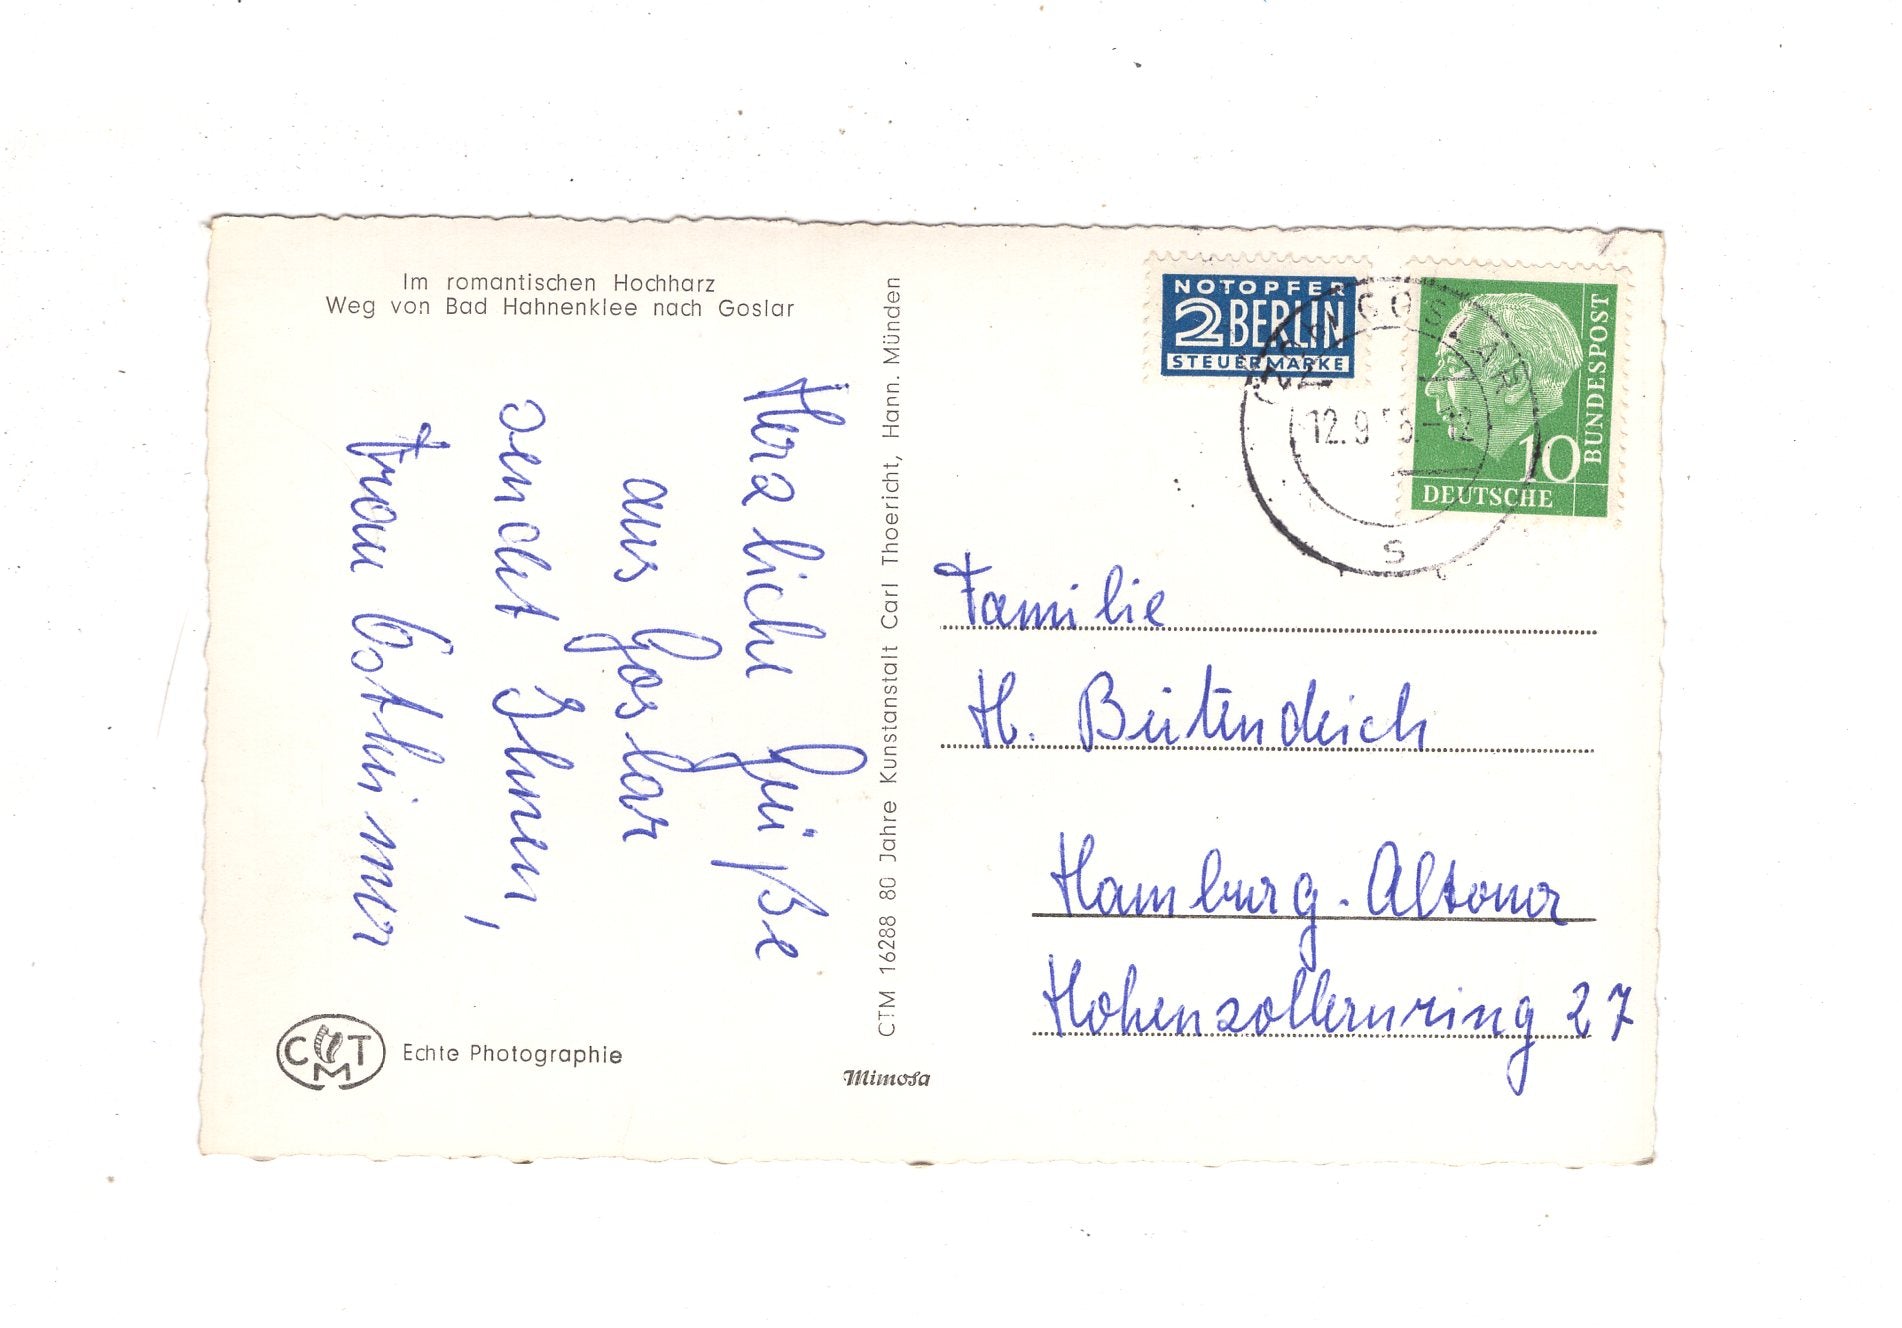 Im romantischen Hochharz
Weg von Bad Hahnenklee nach Goslar
Herzliche Grüße
aus Goslar
sendet Ihnen,
Frau
CTM 16288 80 Jahre Kunstanstalt Carl Thoericht, Hann. Münden
Echte Photographie
C M T
Mimosa
NOTOPFER
2 BERLIN
STEUERMARKE
GOSLAR
12.9
-12
s
10
DEUTSCHE
BUNDESPOST
Familie
H. Beitendeich
Hamburg-Altona
Hohenzollernring 27